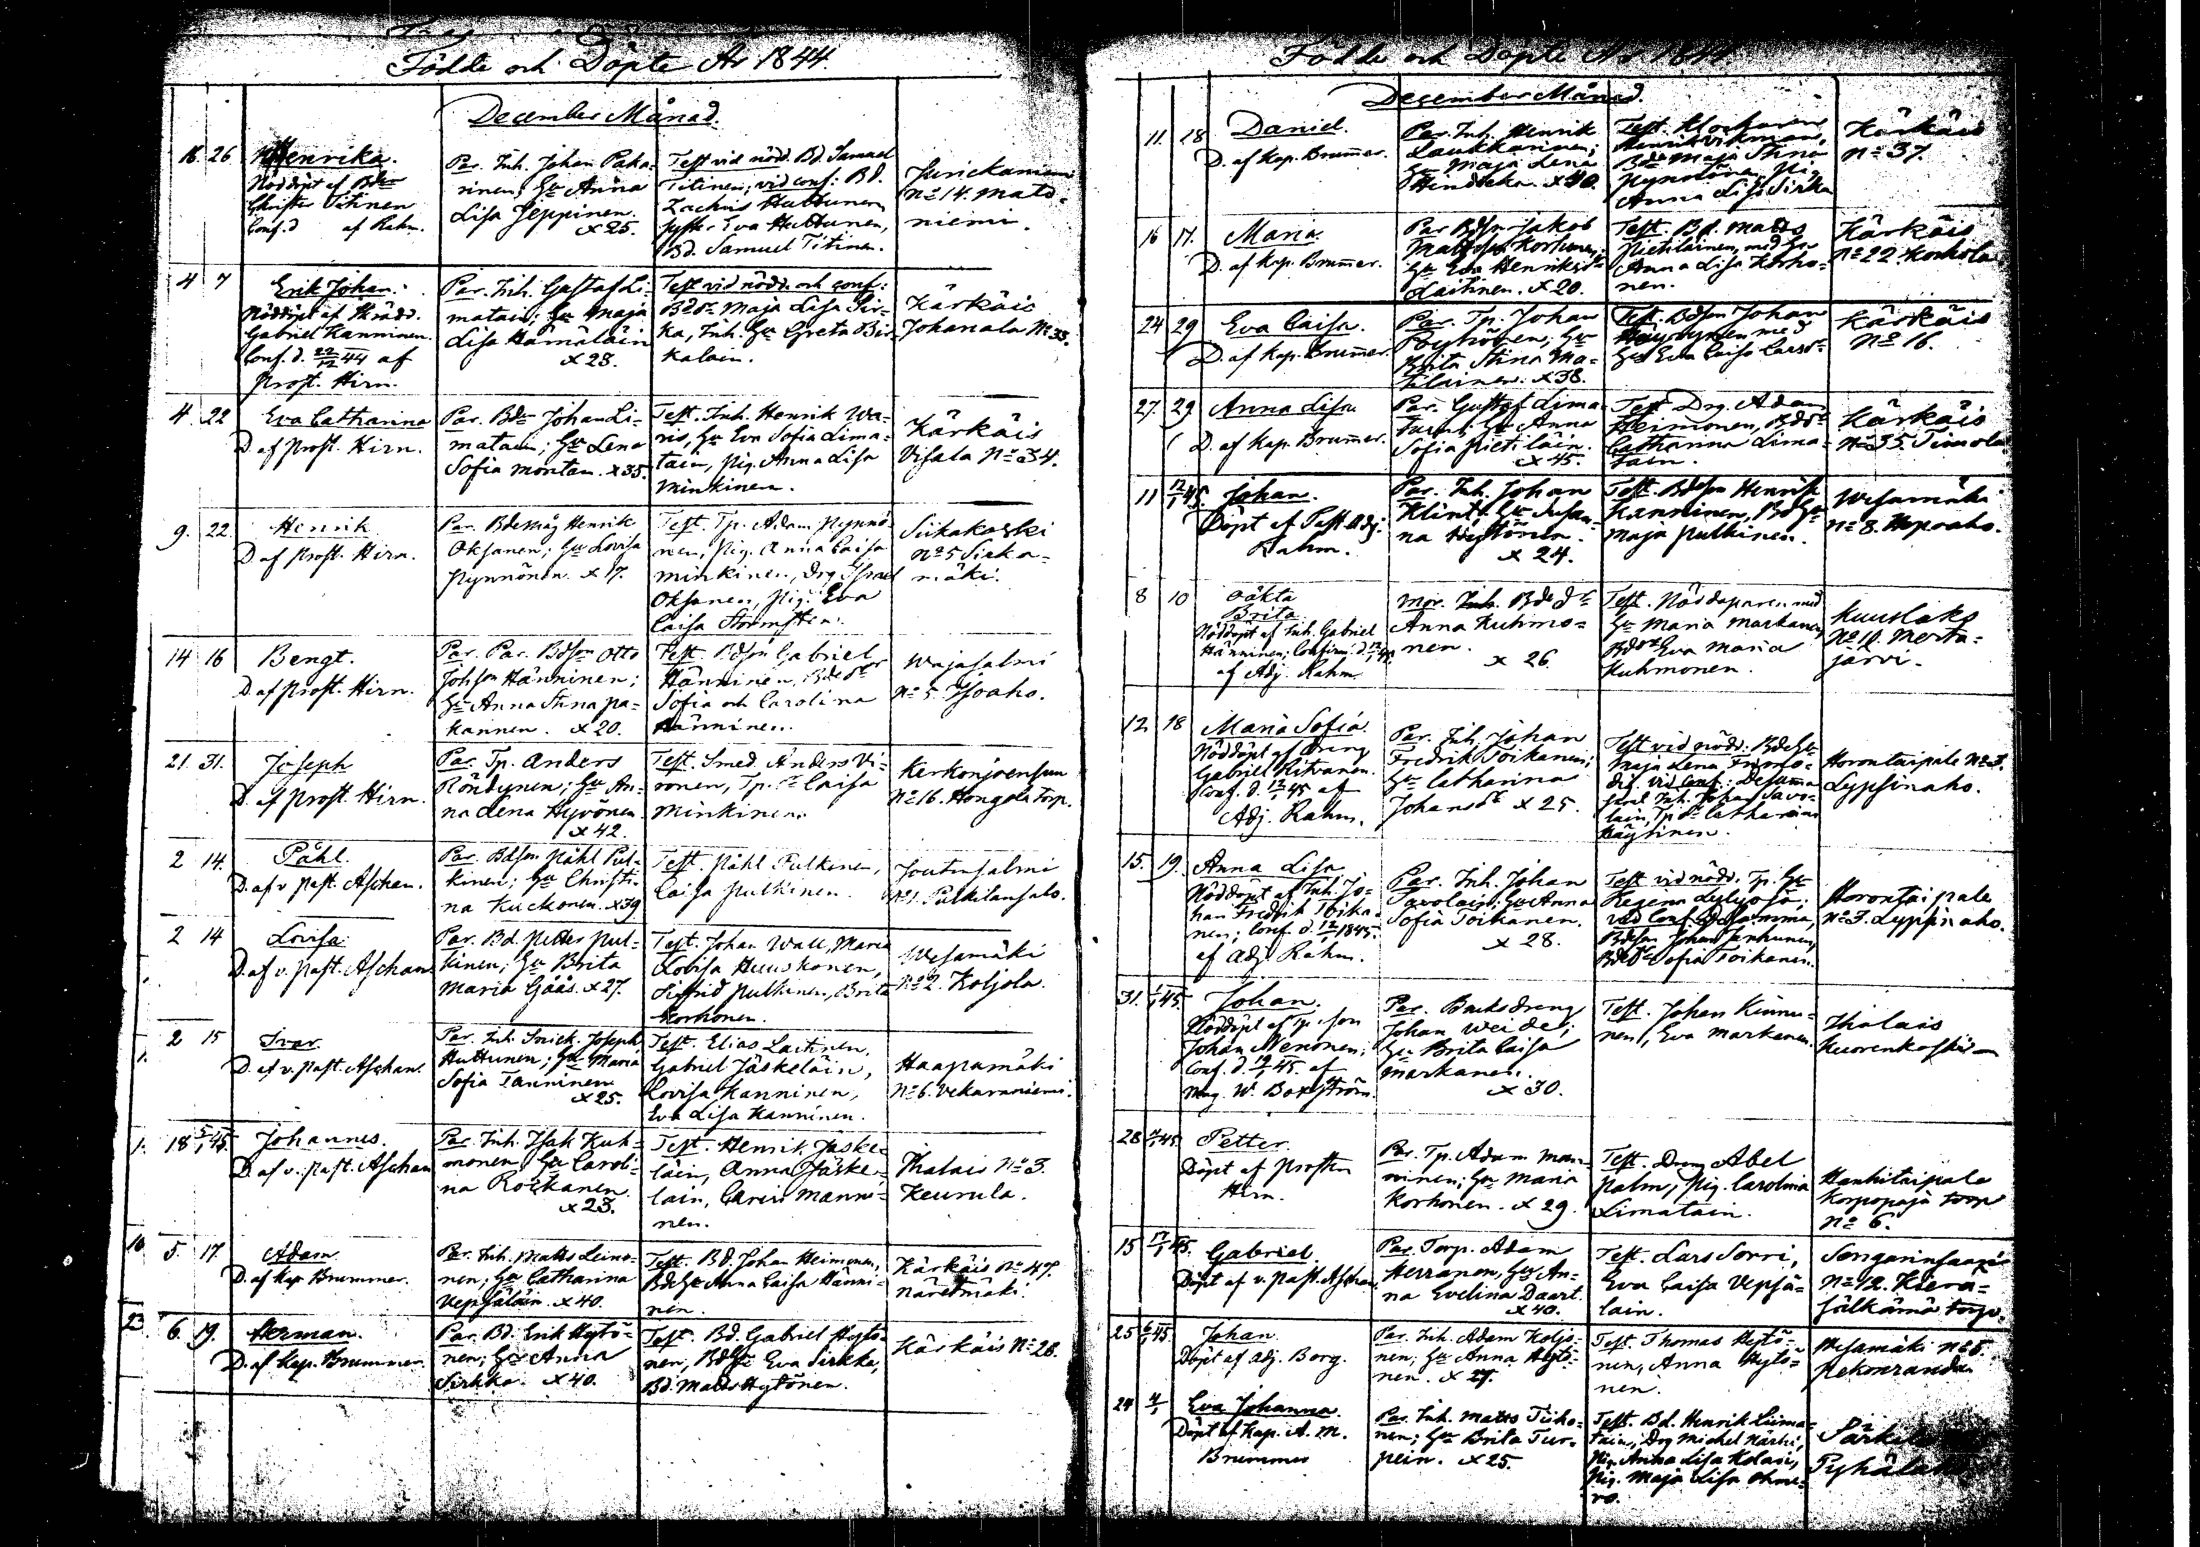 Födde och Döpte År 1844.
December Månad.
18. 26 Henrika.
Nöddöpt af Bden
Christer Titinen
Conf. d af Rahm.
Par. Inh. Johan Paka-
rinen; Hu Anna
Lisa Jeppinen.
x 25.
Test vid nödd. Bd. Samuel
Titinen; vid conf: Bd.
Zachris Huttunen,
Eva Huttunen,
Bd. Samuel Titinen.
No 14. Mato-
niemi.
4 7 Erik Johan.
Nöddöpt af Skrädd.
Gabriel Kanninen.
Conf. d. 22/12 44 af
Prost. Hirn.
Par. Inh. Gustaf Li-
matain; Hu Maja
Lisa Hämäläin
x 28.
Test vid nödd. och conf:
Maja Lisa Sir-
ka, Inh. Hu Greta Bir-
kalain.
Kärkäis
Johanala No 33.
4. 22 Eva Catharina
D. af Prost. Hirn.
Par. Bdn Johan Li-
matain; Hu Lena
Sofia Montan. x 35.
Test. Inh. Henrik Wa-
ris, Hu Eva Sofia Lima-
tain, Pig. Anna Lisa
Minkinen.
Kärkäis
Visala No 34.
9. 22. Henrik
D. af Prost. Hirn.
Par. Bdemåg Henrik
Oksanen; Hu Lovisa
Pynnönen. x 17.
Test. Tp. Adam Pynnö-
nen, Pig. Anna Caisa
Minkinen, Drg Israel
Oksanen, Pig. Eva
Caisa Stormsten.
Siikakoski
No 5 Sirka-
mäki.
14 16 Bengt.
D. af Prost. Hirn.
Par. Par. Bdson Otto
Johson Hänninen;
Hu Anna Stina Pa-
kannen. x 20.
Test. Bdson Gabriel
Hänninen, Bdedr
Sofia och Carolina
Hänninen.
Wajasalmi
No 5. Isoaho.
21. 31. Joseph
D. af Prost. Hirn.
Par. Tp. Anders
Röndynen; Hu An-
na Lena Hyvönen
x 42.
Test. Smed. Anders Vi-
ronen, Tp. dr Caisa
Minkinen.
Kerkonjoensuu
No 16. Hongola Torp.
2 14. Påhl.
D. af v. Past. Aschan.
Par. Bdson Påhl Pul-
kinen; Hu Christi-
na Kuckonen. x 39
Test. Påhl Pulkinen,
Caisa Pulkinen.
Joutinsalmi
No 1. Pulkilansalo.
2 14 Lovisa.
D. af v. Past. Aschan.
Par. Bd. Petter Pul-
kinen; Hu Brita
Maria Gåås. x 27.
Test. Johan Wall, Maria
Lovisa Huuskonen,
Sigfrid Pulkinen, Brita
Korhonen.
Wesamäki
No 2. Koljola.
2 15 Ivar.
D. af v. Past. Aschan.
Par. Inh. Snick. Joseph
Huttunen; Hu Maria
Sofia Tanninen
x 25.
Test. Elias Laitinen,
Gabriel Jäskeläin,
Lovisa Kanninen,
Eva Lisa Kanninen.
Haapamäki
No 6. Vekaraniemi.
1. 18 5/1 45. Johannes.
D. af v. Past. Aschan
Par. Inh. Isak Kuh-
monen; Hu Caroli-
na Roikanen.
x 23.
Test. Henrik Jäske-
läin, Anna Jäske-
lain, Carin Manni-
nen.
Ihalais No 3.
Keurula.
5. 17. Adam
D. af Kap. Brummer.
Par. Inh. Matts Leino-
nen; Hu Catharina
Vepsäläin. x 40.
Test. Bd. Johan Heimonen,
Bde Hu Anna Caisa Hänni-
nen.
Kärkäis No 47.
Näretmäki.
23. 6. 19. Herman.
D. af Kap. Brummer.
Par. Bd. Erik Hytö-
nen; Hu Anna
Sirkka. x 40.
Test. Bd. Gabriel Hytö-
nen, Bde Hu Eva Sirkka,
Bd. Matts Hytönen.
Kärkäis No 28.
Födde och Döpte År 1844.
December Månad.
11. 18 Daniel.
D. af Kap. Brummer.
Par. Inh. Henrik
Laukkarinen;
Hu Maja Lena
x 40.
Test. Klockaren
Henrik Vikman,
Maja Stina
Pynnönen, Pig.
Anna Lisa Sirka
Kärkäis
No 37.
16 17. Maria.
D. af Kap. Brummer.
Par Bdson Jakob
Mattsson Korhonen,
Hu Eva Henriksdr
Laitinen. x 20.
Test. Bd. Matts
Pietiläinen, med Hu
Anna Lisa Korho-
nen.
Kärkäis
No 22. Korhola
24 29 Eva Caisa.
D. af Kap. Brummer.
Par. Tp. Johan
Pöyhönen; Hu
Brita Stina Ma-
tilainen. x 38.
Test. Bdson Johan
med
Hu Eva Caisa Larsdr
Kärkäis
No 16.
27. 29 Anna Lisa
D. af Kap. Brummer.
Par. Gustaf Lima-
tain; Hu Anna
Sofia Pietiläin.
x 45.
Test Drg. Adam
Heimonen, Bdedr
Catharina Lima-
tain.
Kärkäis
No 35. Simola
11 12/1 45. Johan.
Döpt af Past. Adj.
Rahm.
Par. Inh. Johan
Klint; Hu Susan-
na Hytönen.
x 24.
Test. Bdeson Henrik
Kanninen, Bd Hu
Maja Pulkinen.
Wesamäki
No 8. Hepoaho.
8 10 oäkta
Brita
Nöddöpt af Inh. Gabriel
Hänninen; Confirm. d. 12/1 45
af Adj. Rahm.
Mor. Inh. Bdedr
Anna Kuhmo-
nen.
x 26.
Test. Nöddöparen med
Hu Maria Markanen,
Bdedr Eva Maria
Kuhmonen.
Kuuslaks
No 10. Merta-
järvi.
12 18 Maria Sofia.
Nöddöpt af Dreng
Gabriel Ritvanen.
Conf. d. 12/1 45 af
Adj. Rahm.
Par. Inh. Johan
Fredrik Toikanen;
Hu Catharina
Johansdr x 25.
Test vid nödd. Bde Hu
Maja Lena
vid conf: Desamma
Inh. Johan Savo-
lain, Tp. dr Catharina
Käytinen.
Horontaipale No 3.
Lyppinaho.
15. 19. Anna Lisa
Nöddöpt af Inh. Jo-
han Fredrik Toika-
nen; Conf. d. 12/1 1845.
af Adj. Rahm.
Par. Inh. Johan
Savolain; Hu Anna
Sofia Toikanen.
x 28.
Test vid nödd. Tp. Hu
Regena Lylyoja;
vid Conf. Desamma,
Bdeson Johan Janhunen,
Bdedr Sofia Toikanen.
Horontaipale
No 3. Lyppinaho.
31. 1/1 45. Johan.
Nöddöpt af Tp. son
Johan Nenonen;
Conf. d. 19/1 45. af
Mag. W. Boxström.
Par. Bruksdreng
Johan Weide;
Hu Brita Caisa
Markanen.
x 30.
Test. Johan Kinnu-
nen, Eva Markanen.
Ihalais
Kuorenkoski
28 4/1 45. Petter.
Döpt af Prosten
Hirn.
Par. Tp. Adam Man-
ninen; Hu Maria
Korhonen. x 29.
Test. Dreng Abel
Palm, Pig. Carolina
Limatain.
Hankitaipale
Korpopaja torp
No 6.
15 12/1 45. Gabriel.
Döpt af v. Past. Aschan
Par. Torp. Adam
Herranen, Hu An-
na Evelina Daart.
x 40.
Test. Lars Sorri,
Eva Caisa Vepsä-
lain.
Songarinsaari
No 12. Kiera-
sälkämä torp.
25 6/1 45 Johan
Döpt af Adj. Borg.
Par. Inh. Adam Koljo-
nen; Hu Anna Hytö-
nen. x 27.
Test. Thomas Hytö-
nen, Anna Hytö-
nen.
Wesamäki No 5.
Pekonranda
24 4/1 Eva Johanna.
Döpt af Kap. A. M.
Brummer
Par. Inh. Matts Tiiho-
nen; Hu Brita Tur-
pein. x 25.
Test. Bd. Henrik Liima-
tain, Drg Michel Närhi,
Pig. Anna Lisa Kolari,
Pig. Maja Lisa